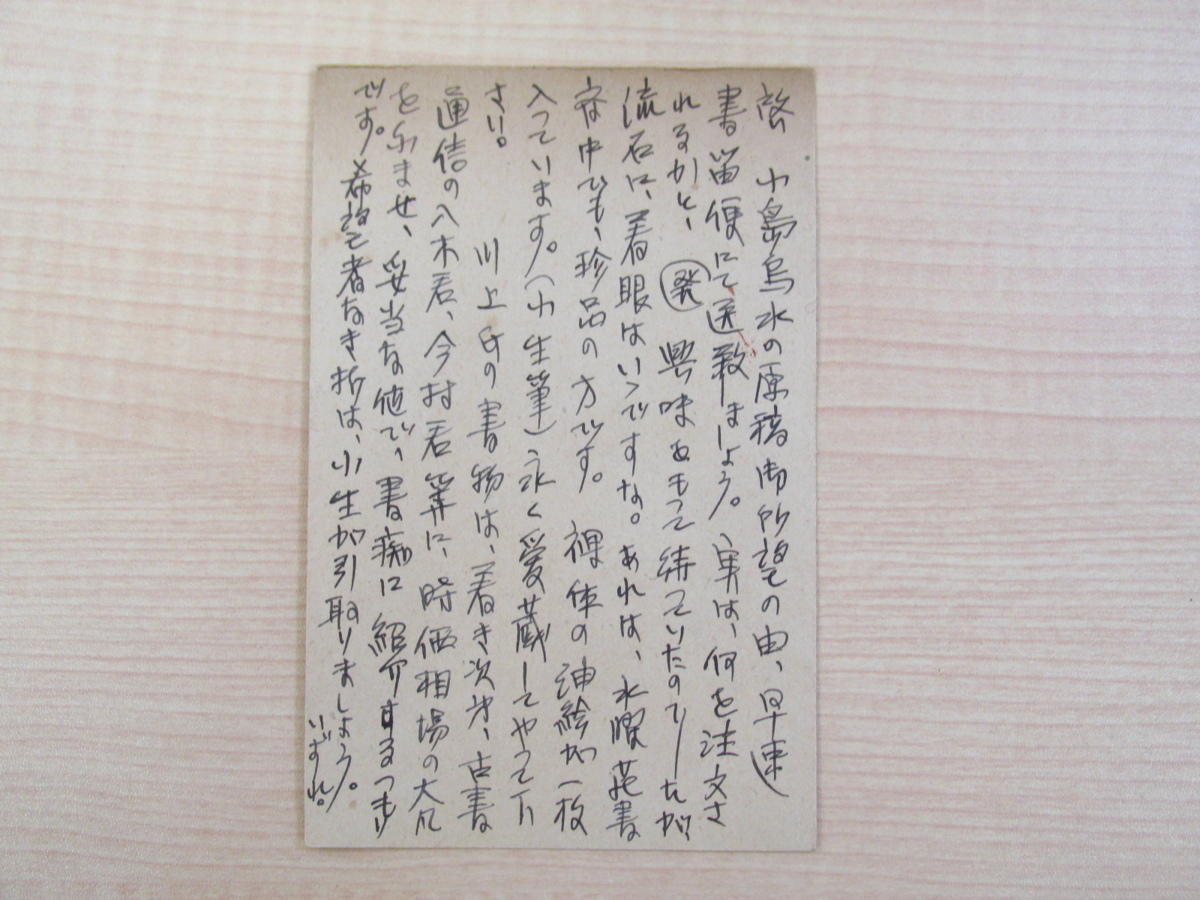 啓 小島烏水の原稿御所望の由、早速
書留便にて送致しましょう。実は、何を注文さ
れるかと、発 興味をもって待っていたのでしたが
流石に、着眼はいゝですな。あれは、水曜荘書
容中でも、珍品の方です。 裸体の油絵が一枚
入っています。(小生筆)永く愛蔵してやって下
さい。 川上氏の書物は、着き次才、古書
通信の八木君、今村君等に、時価相場の大凡
をふませ、妥当な値で、書痴に紹介するつもり
です。希望者なき折は、小生が引取りましょう。
いずれ。